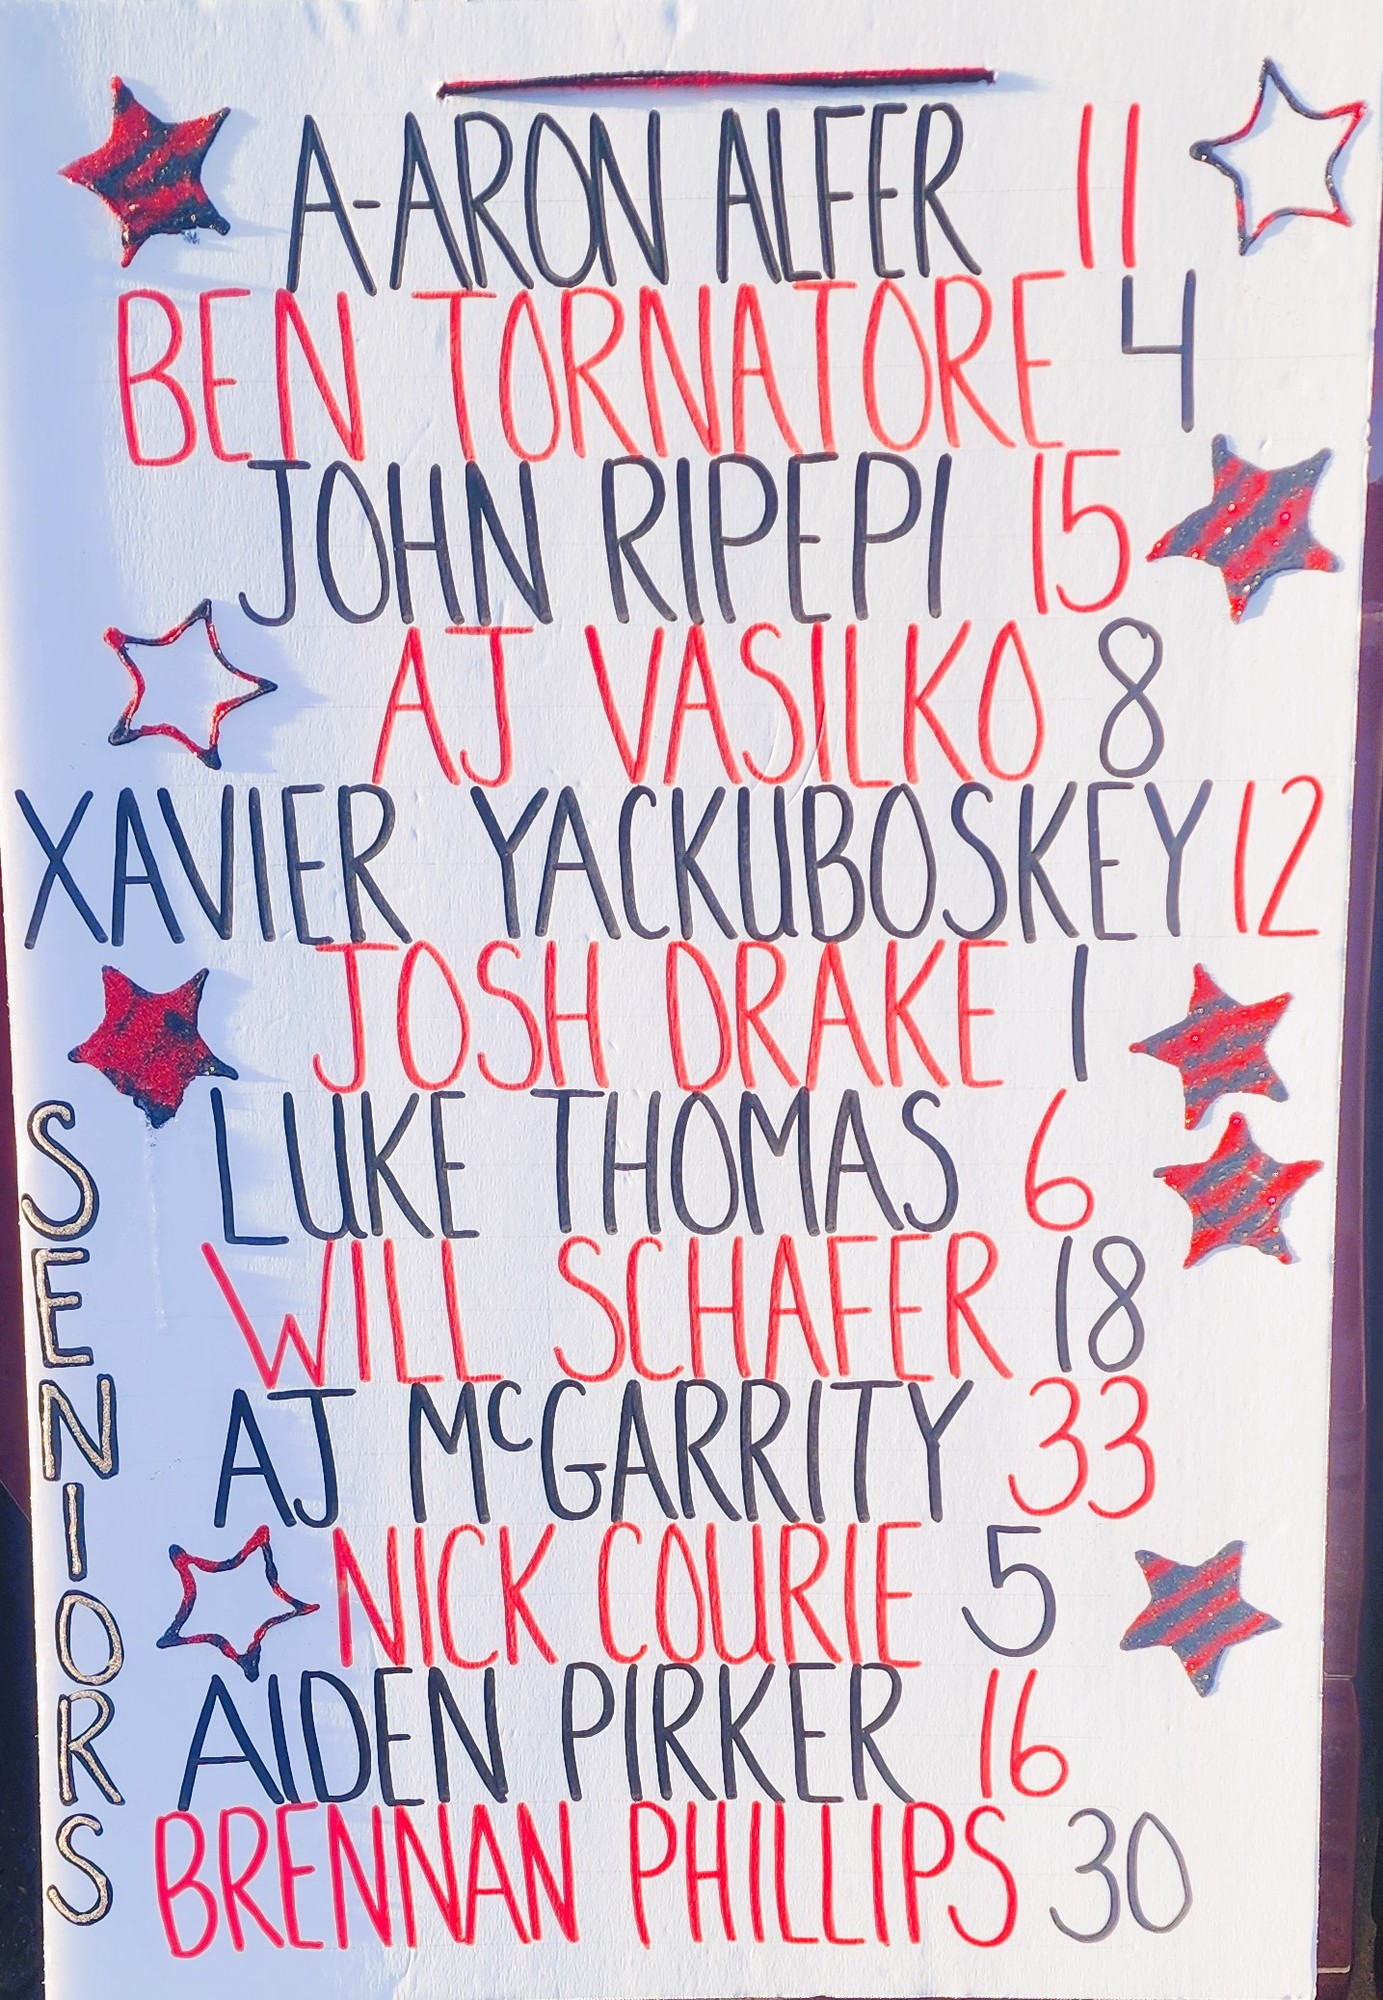 A-ARON ALFER 11
BEN TORNATORE 4
JOHN RIPEPI 15
AJ VASILKO 8
XAVIER YACKUBOSKEY 12
JOSH DRAKE 1
LUKE THOMAS 6
WILL SCHAFER 18
AJ McGARRITY 33
NICK COURIE 5
AIDEN PIRKER 16
BRENNAN PHILLIPS 30
SENIORS